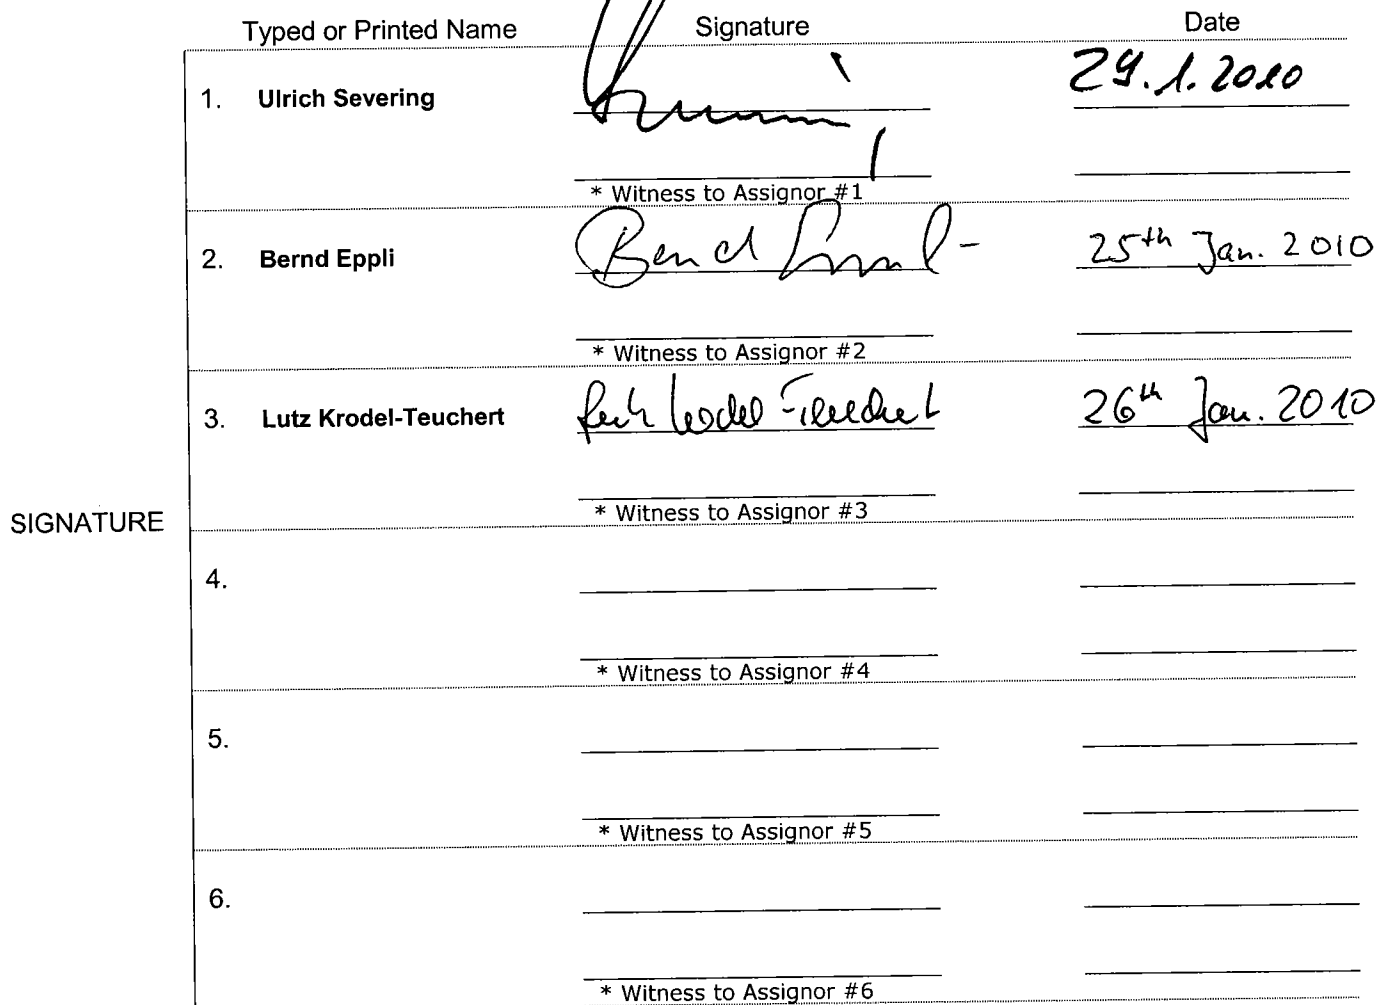 Typed or Printed Name Signature Date
1. Ulrich Severing 29.1.2010
* Witness to Assignor #1
2. Bernd Eppli Bernd 25th Jan. 2010
* Witness to Assignor #2
3. Lutz Krodel-Teuchert Lutz Krodel-Teuchert 26th Jan. 2010
* Witness to Assignor #3
SIGNATURE
4.
* Witness to Assignor #4
5.
* Witness to Assignor #5
6.
* Witness to Assignor #6